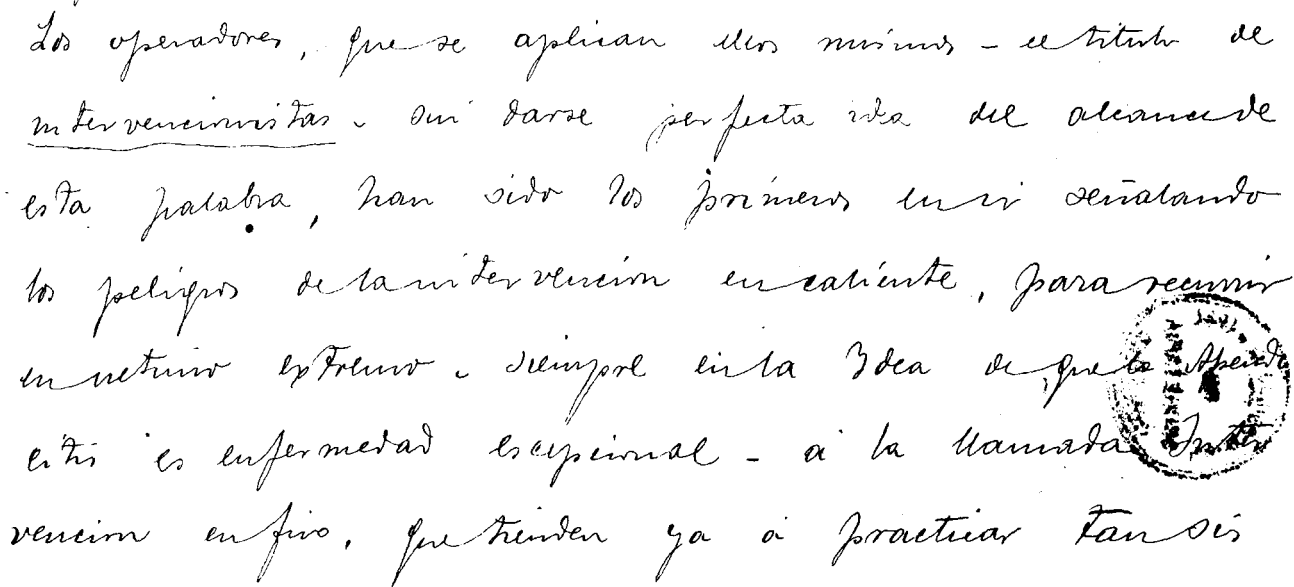 Los operadores, que se aplican ellos mismos - el titulo de
intervencionistas - sin darse perfecta idea del alcance de
esta palabra, han sido los primeros en ir señalando
los peligros de la intervencion en caliente, para recurrir
en ultimo extremo - siempre en la Idea de que la Apendi
citis es enfermedad escepcional - á la llamada Inter
vencion en frio, que tienden ya á practicar tan solo